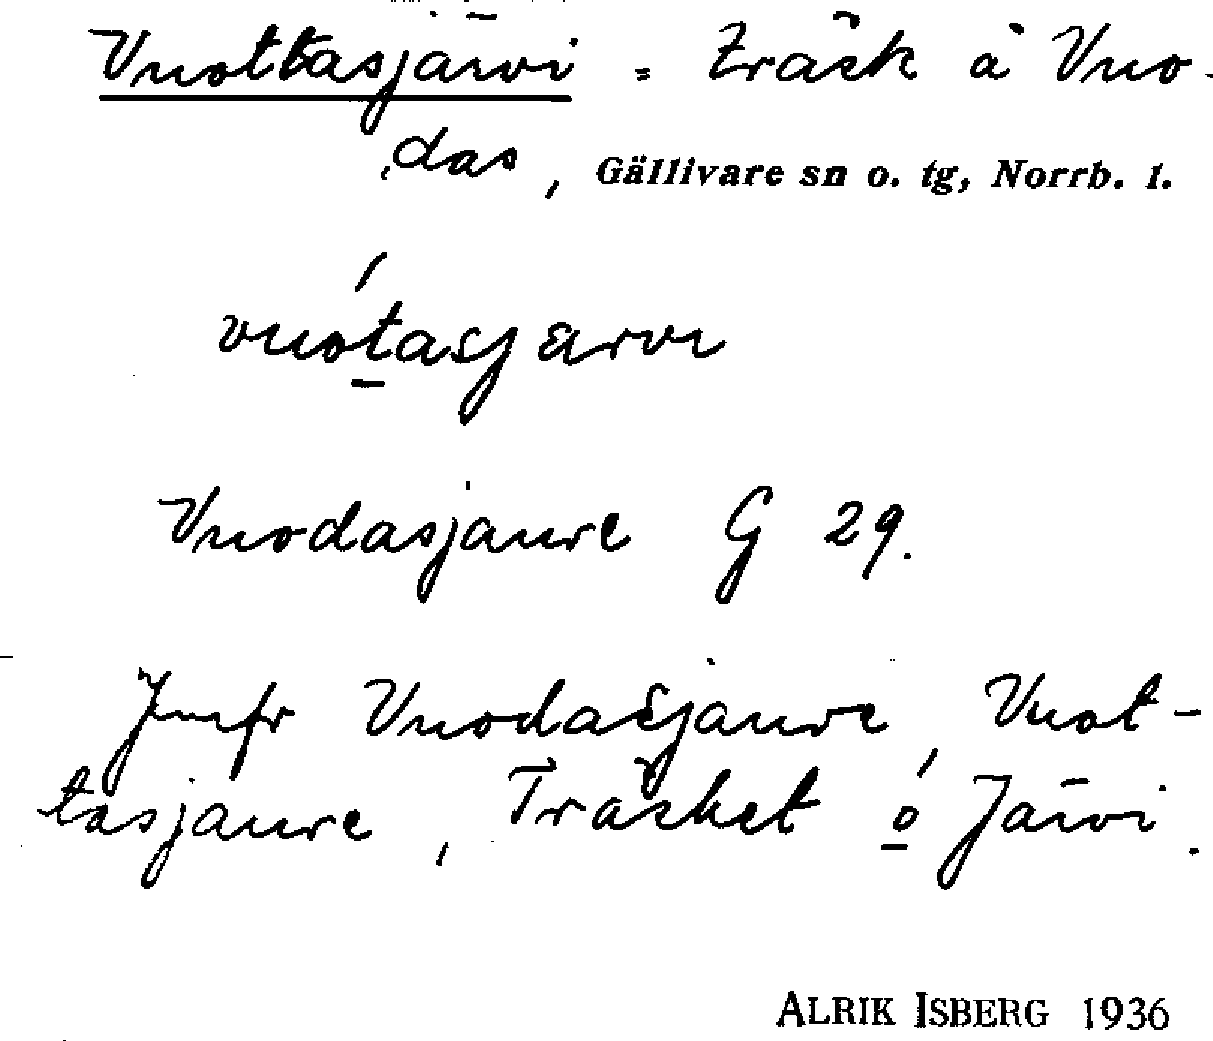 Vuottasjärvi = träsk å Vuo-
das, Gällivare sn o. tg, Norrb. l.
vuo̱tasjærvi
Vuodasjaure G 29.
Jmfr Vuodasjaure, Vuot-
tasjaure, Träsket o̱ Järvi.
ALRIK ISBERG 1936